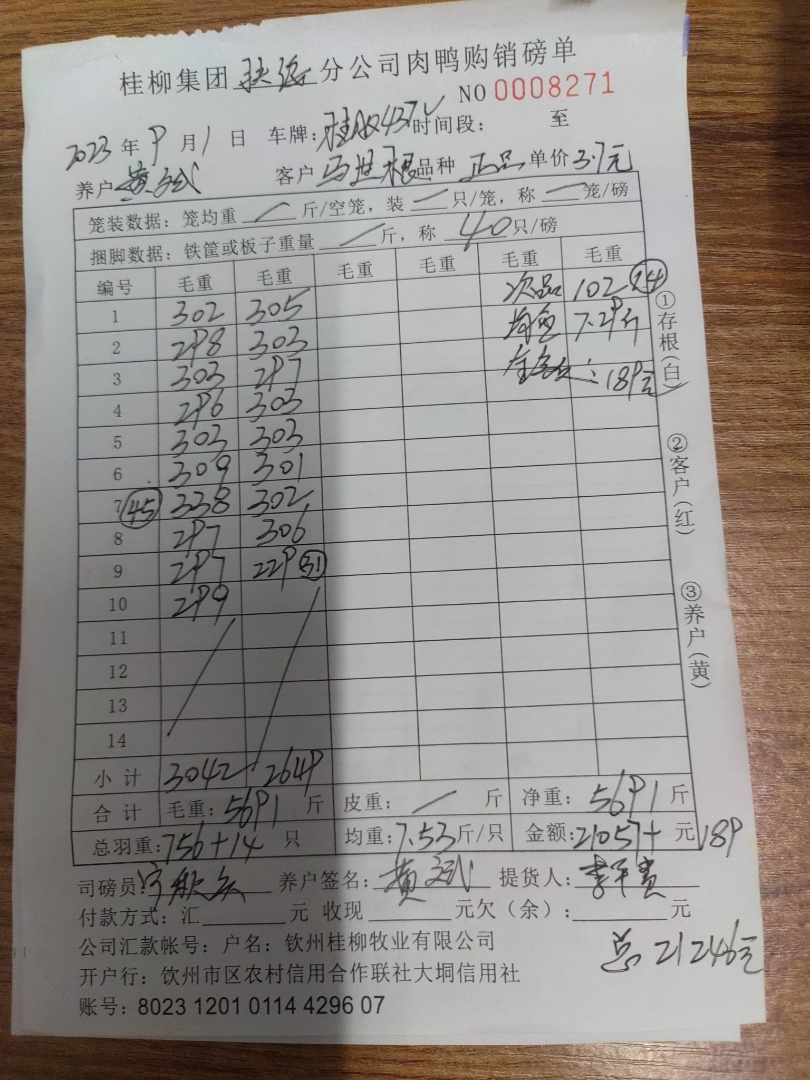 桂柳集团 扶绥 分公司肉鸭购销磅单
NO 0008271
2023 年 9 月 1 日 车牌: 时间段: 至
养户 黄文武 客户 品种 正品 单价 3.7元
笼装数据: 笼均重 / 斤/空笼, 装 一 只/笼, 称 一 笼/磅
捆脚数据: 铁筐或板子重量 / 斤, 称 40 只/磅
编号 毛重 毛重 毛重 毛重 毛重 毛重
1 302 305 次品 102 (14)
2 298 303 均重 7.29斤
3 303 297 : 189元
4 296 303
5 303 303
6 309 301
7 (45) 338 302
8 297 306
9 297 229 (31)
10 299
11
12
13
14
小计 3042 2649
合计 毛重: 5691 斤 皮重: / 斤 净重: 5691 斤
总羽重: 756+14 只 均重: 7.53 斤/只 金额: 21057+ 元 189
司磅员: 养户签名: 黄文武 提货人:
付款方式: 汇 元 收现 元欠(余): 元
公司汇款帐号: 户名: 钦州桂柳牧业有限公司
总 21246元
开户行: 钦州市区农村信用合作联社大垌信用社
账号: 8023 1201 0114 4296 07
①存根(白)
②客户(红)
③养户(黄)